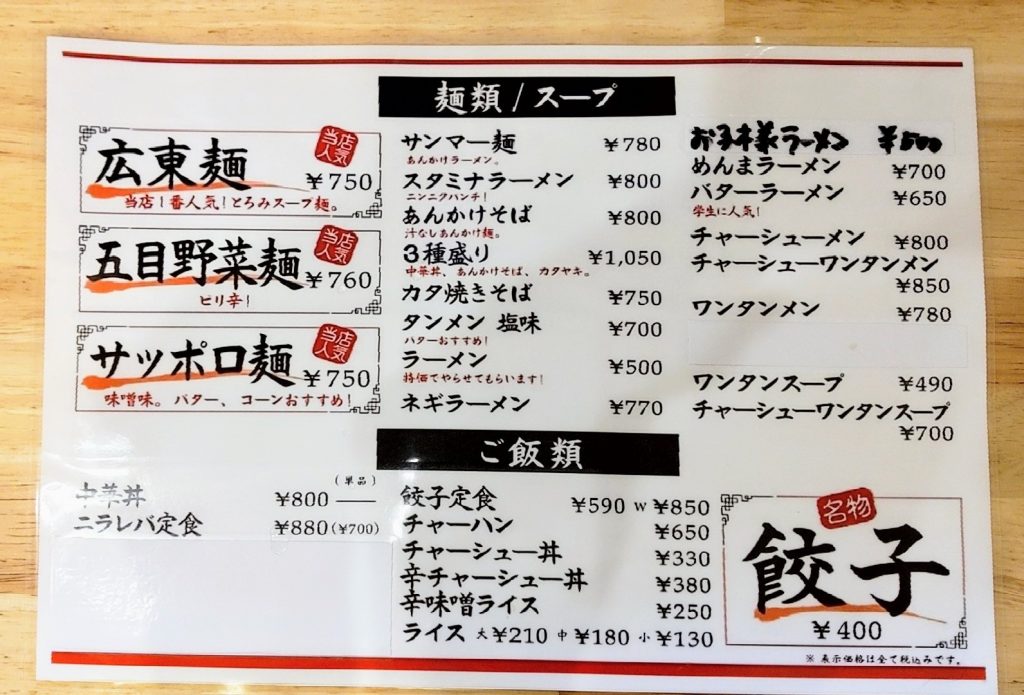 麺類/スープ
広東麺 ¥750
当店人気
当店1番人気!とろみスープ麺。
五目野菜麺 ¥760
当店人気
ピリ辛!
サッポロ麺 ¥750
当店人気
味噌味。バター、コーンおすすめ!
サンマー麺 ¥780
あんかけラーメン。
スタミナラーメン ¥800
ニンニクパンチ!
あんかけそば ¥800
汁なしあんかけ麺。
3種盛り ¥1,050
中華丼、あんかけそば、カタヤキ。
カタ焼きそば ¥750
タンメン 塩味 ¥700
バターおすすめ!
ラーメン ¥500
特価でやらせてもらいます!
ネギラーメン ¥770
お子様ラーメン ¥500
めんまラーメン ¥700
バターラーメン ¥650
学生に人気!
チャーシューメン ¥800
チャーシューワンタンメン
¥850
ワンタンメン ¥780
ワンタンスープ ¥490
チャーシューワンタンスープ
¥700
ご飯類
(単品)
中華丼 ¥800 ——
ニラレバ定食 ¥880(¥700)
餃子定食 ¥590 W ¥850
チャーハン ¥650
チャーシュー丼 ¥330
辛チャーシュー丼 ¥380
辛味噌ライス ¥250
ライス 大¥210 中¥180 小¥130
名物
餃子
¥400
※ 表示価格は全て税込みです。